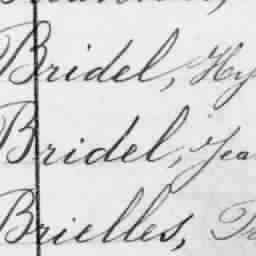 Bridel, Hy
Bridel, Jea
Brielles,